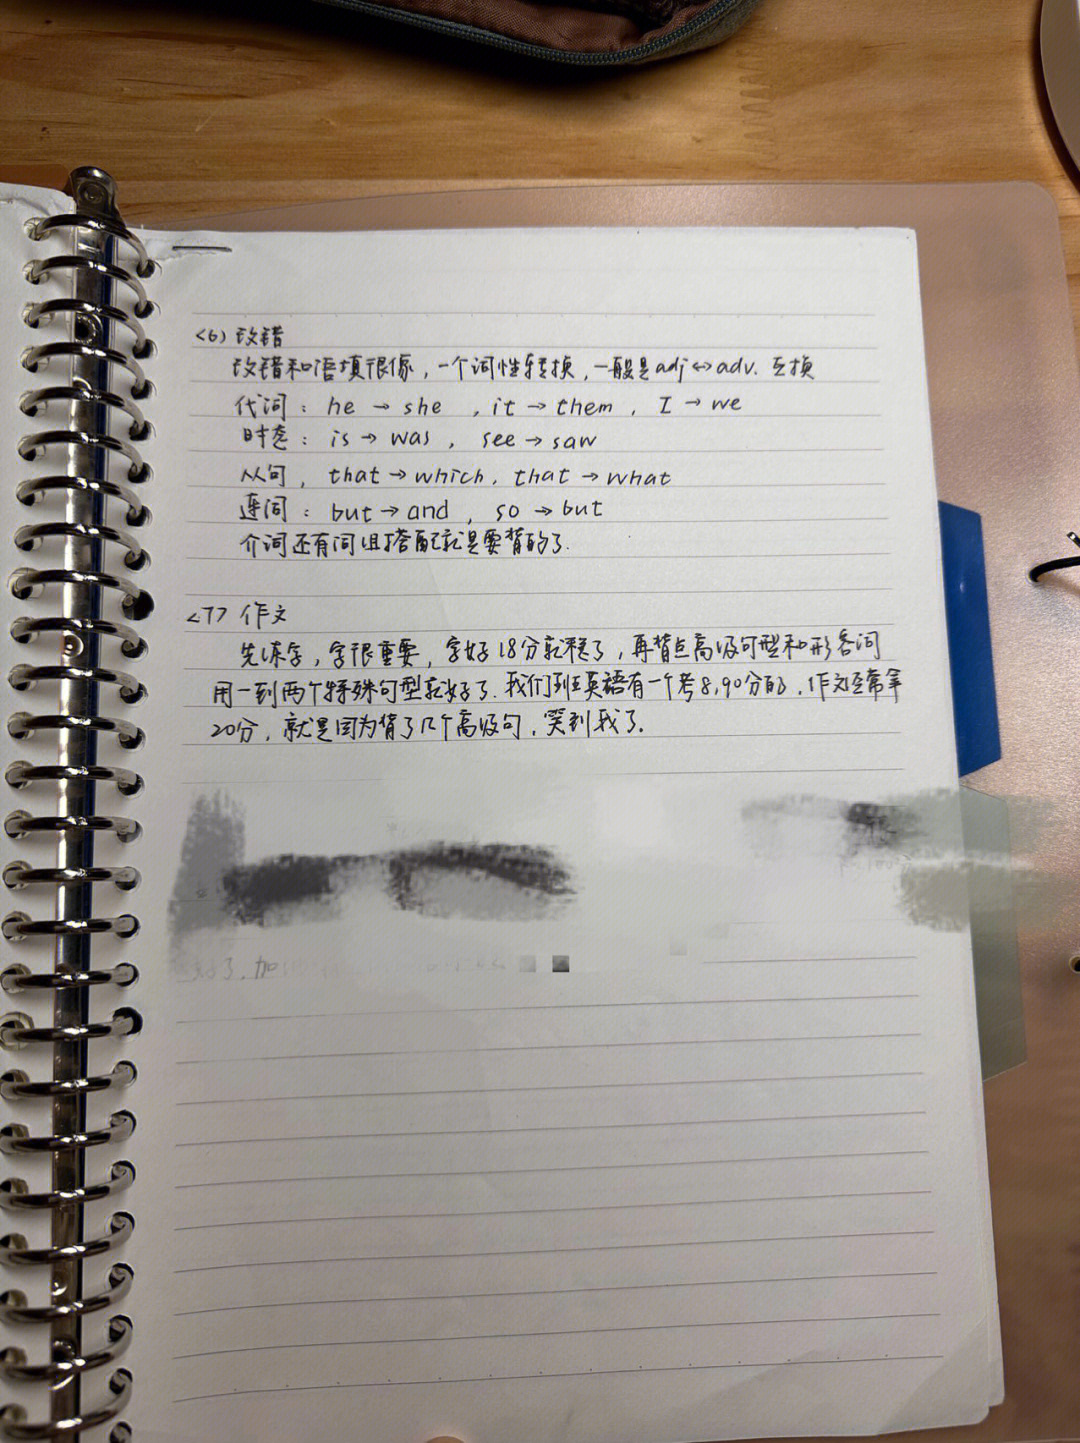 <6> 改错
改错和语填很像，一个词性转换，一般是adj↔adv.互换
代词：he → she ，it → them ，I → we
时态：is → was ，see → saw
从句，that → which，that → what
连词：but → and ，so → but
介词还有词组搭配就是要背的了.
<7> 作文
先练字，字很重要，字好18分就稳了，再背点高级句型和形容词
用一到两个特殊句型就好了.我们班英语有一个考8,90分的，作文经常拿
20分，就是因为背了几个高级句，哭到我了.
了，加